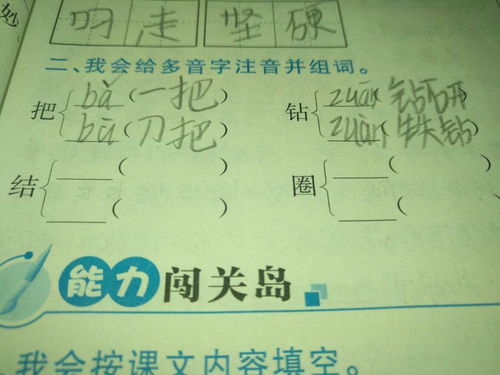 妙
明 走 坚 硬
二、我会给多音字注音并组词。
把 bǎ (一把) 钻 zuān (钻研)
bà (刀把) zuàn (铁钻)
结 ( ) 圈 ( )
( ) ( )
能力闯关岛
我会按课文内容填空。